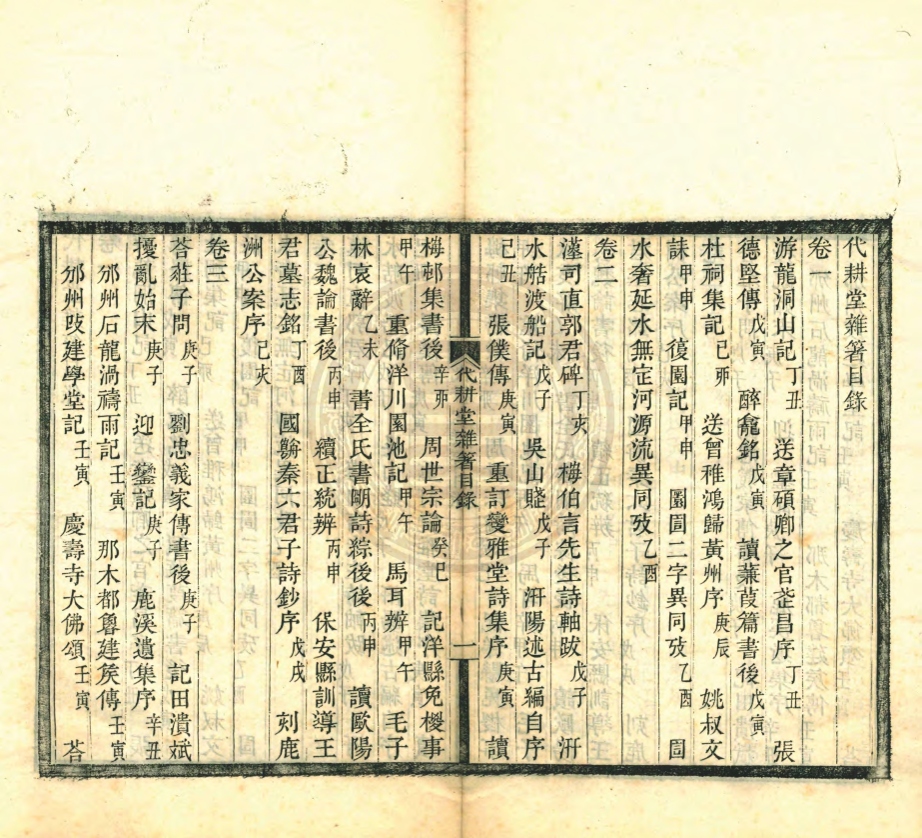 代耕堂雜箸目錄
卷一
游龍洞山記丁丑 送章碩卿之官莶昌序丁丑 張
德堅傳戊寅 醉龕銘戊寅 讀蒹葭篇書後戊寅
杜祠集記己卯 送曾稚鴻歸黃州序庚辰 姚叔文
誄甲申 復園記甲申 圜圁二字異同攷乙酉 圁
水奢延水無定河源流異同攷乙酉
卷二
灋司直郭君碑丁亥 梅伯言先生詩軸跋戊子 汧
水䑩渡船記戊子 吳山賤戊子 汧陽述古編自序
己丑 張僕傳庚寅 重訂變雅堂詩集序庚寅 讀
代耕堂雜箸目錄 一
梅邨集書後辛卯 周世宗論癸巳 記洋縣免椶事
甲午 重脩洋川園池記甲午 馬耳辨甲午 毛子
林哀辭乙未 書全氏書明詩綜後後丙申 讀歐陽
公魏論書後丙申 續正統辨丙申 保安縣訓導王
君墓志銘丁酉 國朝秦六君子詩鈔序戊戌 刻鹿
洲公案序己亥
卷三
荅莊子問庚子 劉忠義家傳書後庚子 記田潰斌
擾亂始末庚子 迎鑾記庚子 鹿溪遺集序辛丑
邠州石龍渦禱雨記壬寅 那木都魯建侯傳壬寅
邠州改建學堂記壬寅 慶壽寺大佛頌壬寅 荅